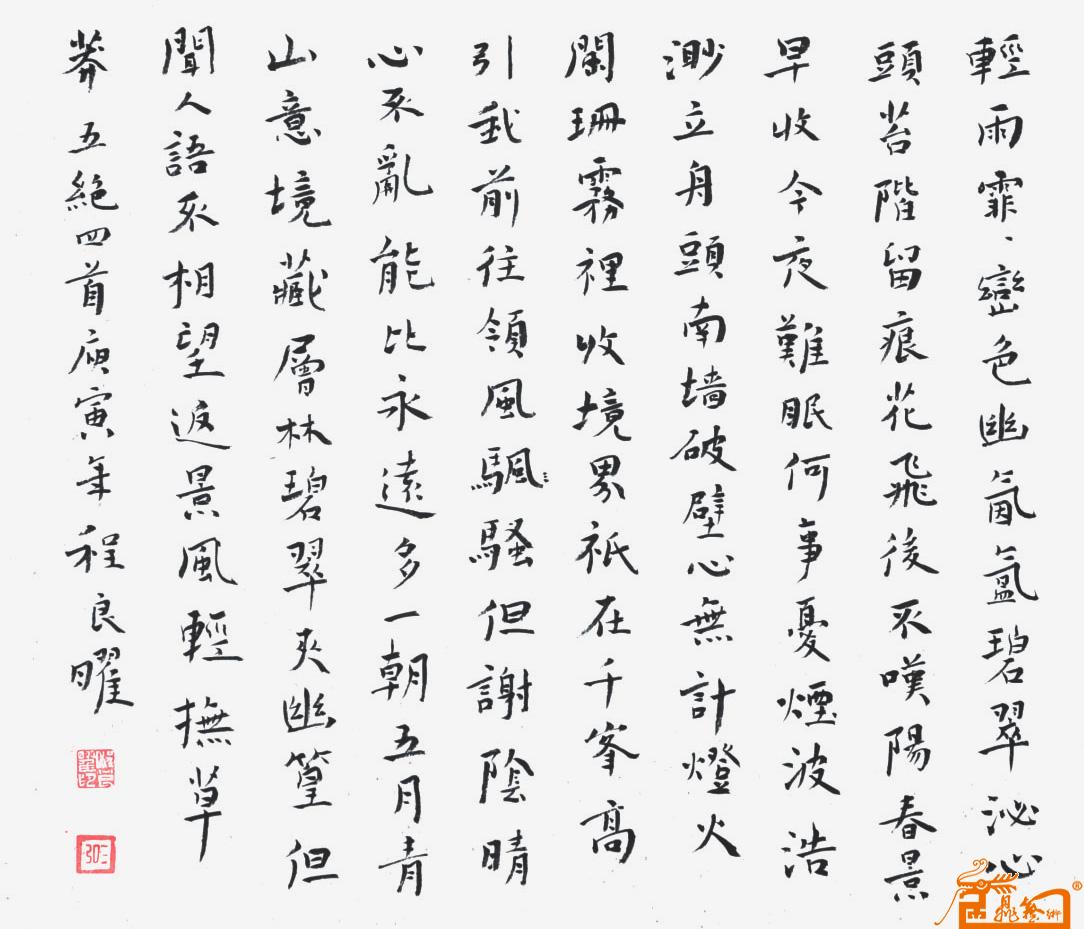 輕雨霏、巒色幽氤氳碧翠沁心
頭苔階留痕花飛後不嘆陽春景
早收今夜難眠何事憂煙波浩
渺立舟頭南墙破壁心無計燈火
闌珊霧裡收境界祇在千峯高
引我前往領風颿騷但謝陰晴
心不亂能比永遠多一朝五月青
山意境藏層林碧翠夾幽篁但
聞人語不相望返景風輕撫草
莽五絕四首庚寅年程良曜